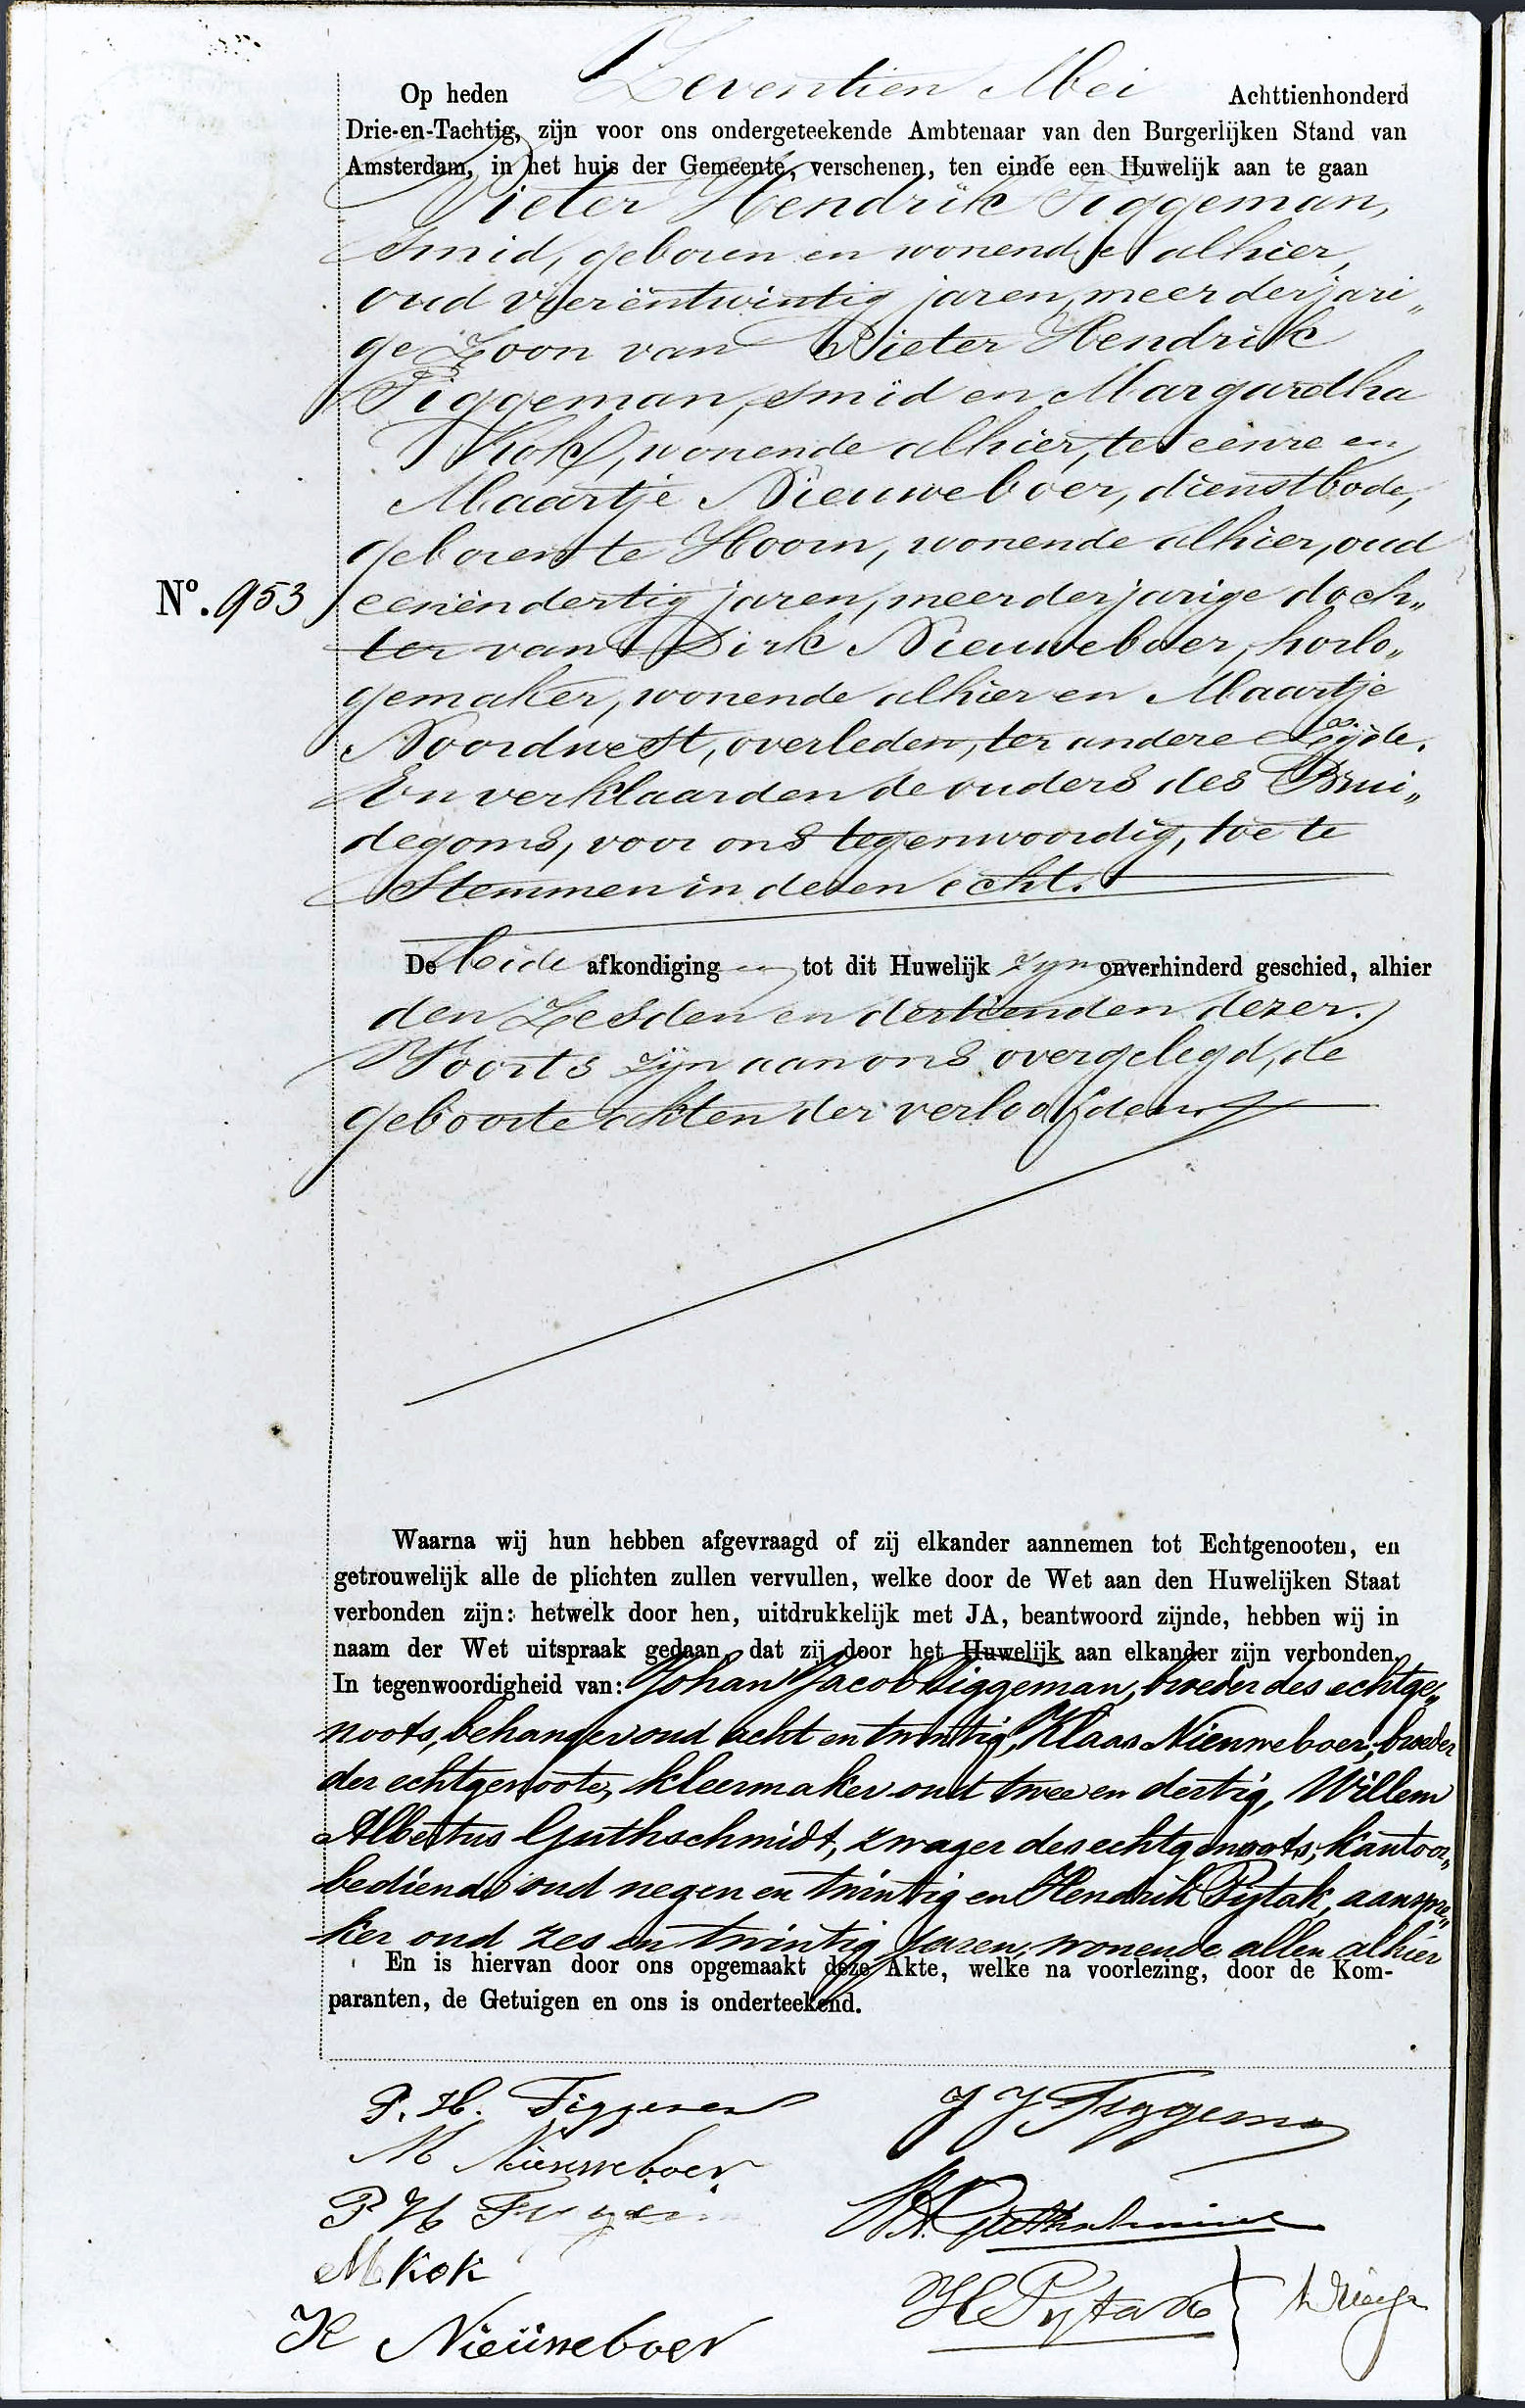 Op heden Zeventien Mei Achttienhonderd
Drie-en-Tachtig, zijn voor ons ondergeteekende Ambtenaar van den Burgerlijken Stand van
Amsterdam, in het huis der Gemeente, verschenen, ten einde een Huwelijk aan te gaan
Pieter Hendrik Figgeman,
smid, geboren en wonende alhier,
oud vierëntwintig jaren, meerderjari„
ge Zoon van Pieter Hendrik
Figgeman, smid en Margaretha
Kok, wonende alhier, ter eenre en
Maartje Nieuweboer, dienstbode,
geboren te Hoorn, wonende alhier, oud
No. 953
eenëndertig jaren, meerderjarige doch„
ter van Dirk Nieuweboer, horlo„
gemaker, wonende alhier en Maartje
Noordwest, overleden, ter andere Zijde.
En verklaarden de ouders des Brui„
degoms, voor ons tegenwoordig, toe te
Stemmen in dezen echt.
De beide afkondiging en tot dit Huwelijk zyn onverhinderd geschied, alhier
den Zesden en dertienden dezer.
Voorts zijn aan ons overgelegd, de
geboorteakten der verloofden.
Waarna wij hun hebben afgevraagd of zij elkander aannemen tot Echtgenooten, en
getrouwelijk alle de plichten zullen vervullen, welke door de Wet aan den Huwelijken Staat
verbonden zijn: hetwelk door hen, uitdrukkelijk met JA, beantwoord zijnde, hebben wij in
naam der Wet uitspraak gedaan, dat zij door het Huwelijk aan elkander zijn verbonden.
In tegenwoordigheid van: Johan Jacob Figgeman, broeder des echtge„
noots, behanger oud acht en twintig, Klaas Nieuweboer, broeder
der echtgenoote, kleermaker oud twee en dertig, Willem
Albertus Guthschmidt, zwager des echtgenoots, kantoor„
bediende oud negen en twintig en Hendrik Pijtak, aanspre„
ker oud zes en twintig Jaren, wonende allen alhier
En is hiervan door ons opgemaakt deze Akte, welke na voorlezing, door de Kom-
paranten, de Getuigen en ons is onderteekend.
P. H. Figgeman
J J Figgeman
M Nieuweboer
P H Figgeman
M Kok
H Pytak
K Nieüweboer